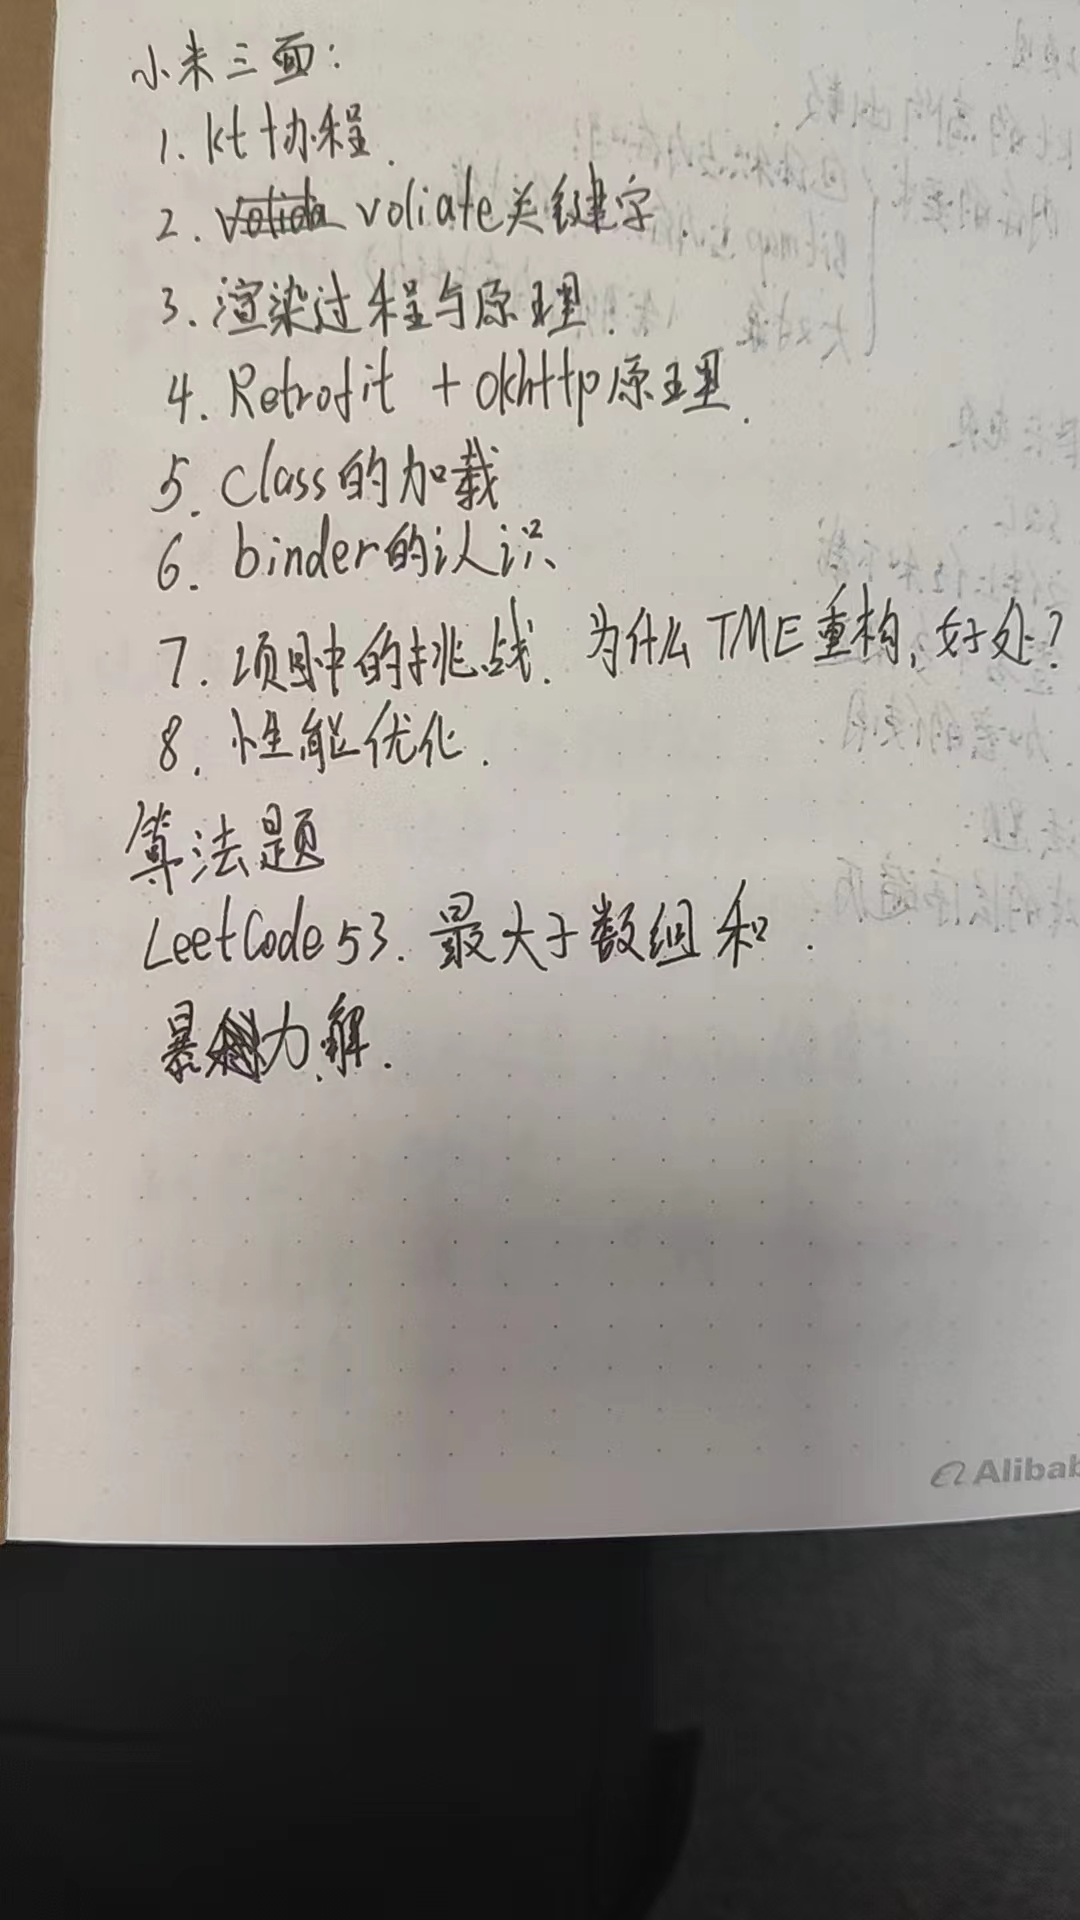 小米三面:
1. kt 协程.
2. voliate关键字
3. 渲染过程与原理.
4. Retrofit + okhttp原理.
5. class的加载
6. binder的认识
7. 项目中的挑战. 为什么TME重构,好处?
8. 性能优化.
算法题
LeetCode 53. 最大子数组和.
暴力解.
Alibab